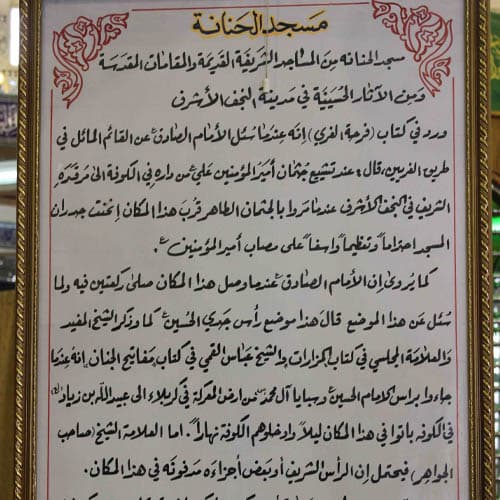 مسجد الحنانة
مسجد الحنانه من المساجد الشريفة القديمة والمقامات المقدسة
ومن الآثار الحسينية في مدينة النجف الأشرف
ورد في كتاب (فرحة الغري) إنه عندما سئل الأمام الصادق ع عن القائم المائل في
طريق الغريين، قال: عند تشييع جثمان أمير المؤمنين علي ع من داره في الكوفة الى مرقده
الشريف في النجف الأشرف عندما مروا بالجثمان الطاهر قرب هذا المكان إنحنت جدران
المسجد احتراماً وتعظيماً واسفاً على مصاب أمير المؤمنين ع.
كما يُروى إن الأمام الصادق ع عندما وصل هذا المكان صلى ركعتين فيه ولما
سُئل عن هذا الموضع قال هذا موضع رأس جدي الحسين ع كما وذكر الشيخ المفيد
والعلامة المجلسي في كتاب المزارات والشيخ عباس القمي في كتاب مفاتيح الجنان إنه عندما
جاءوا براس الامام الحسين ع وسبايا آل محمد من ارض المعركة في كربلاء الى عبيد الله بن زياد
في الكوفه باتوا في هذا المكان ليلاً وادخلوهم الكوفة نهاراً. اما العلامة الشيخ (صاحب
الجواهر) فيحتمل إن الرأس الشريف أو بعض أجزاءه مدفونه في هذا المكان.